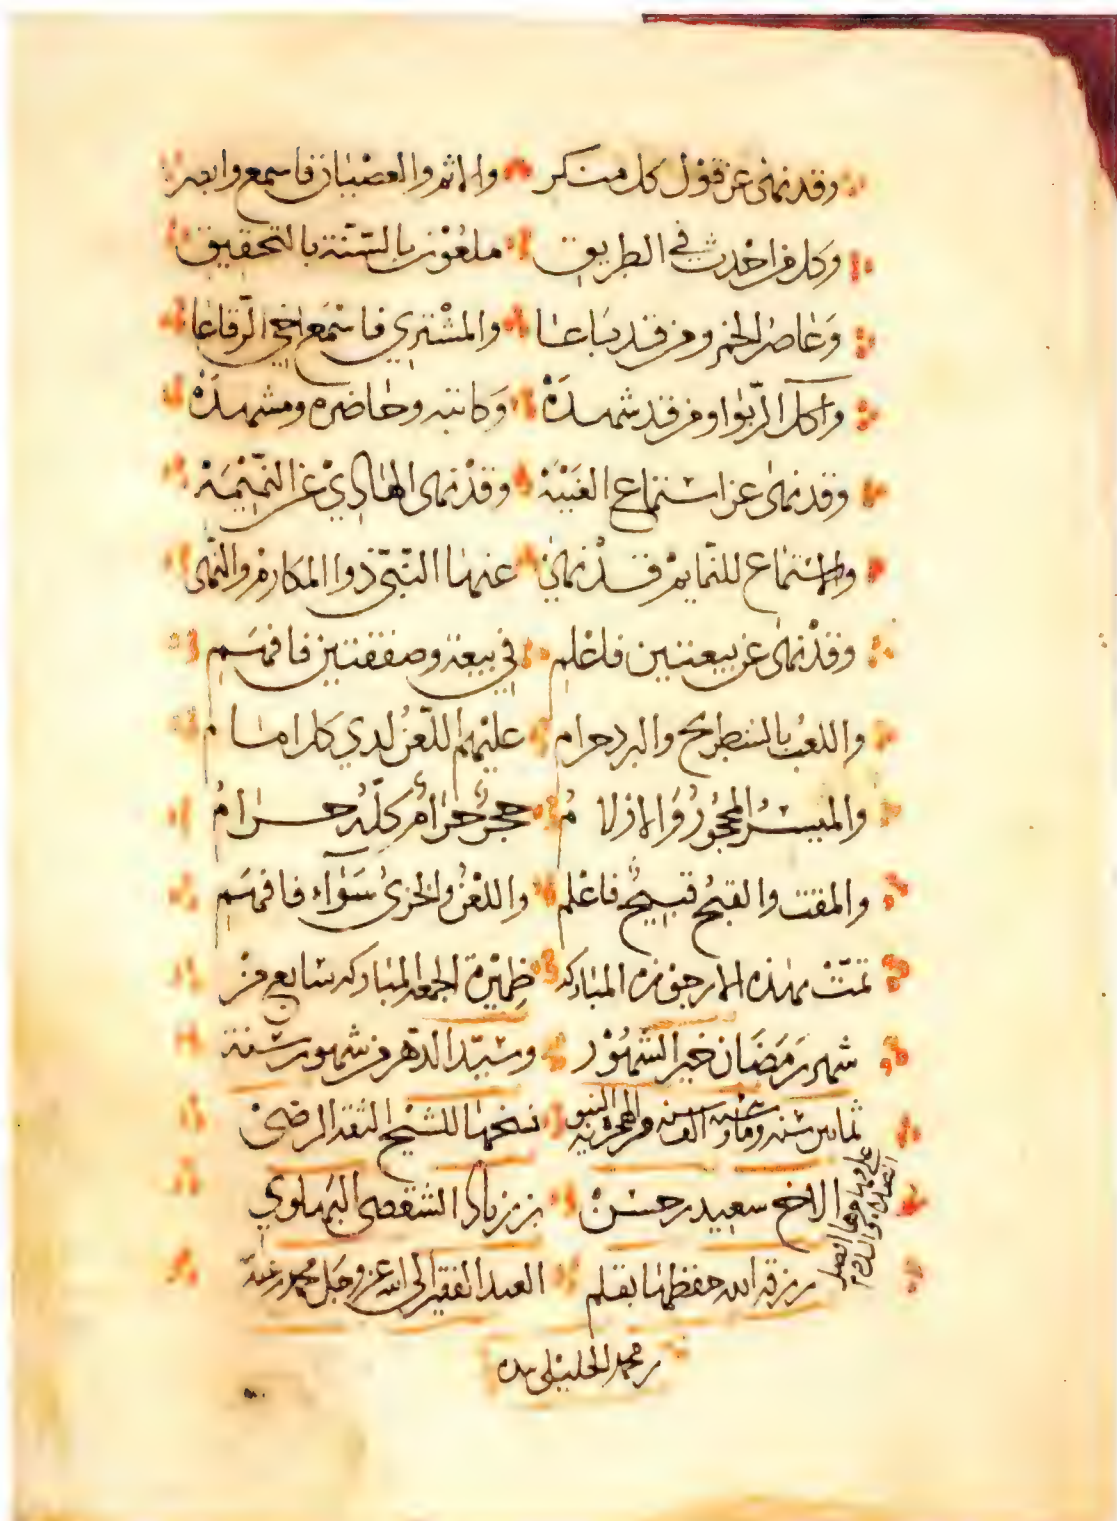 وقد نهى عن قول كل منكر والاثم والعصيان فاسمع وابصر
وكل من احدث في الطريق ملعون بالسّنّة بالتحقيق
وعاصر الخمر ومن قد باعا والمشتري فاسمع اخي الرّقاعا
وآكل الرّبوا ومن قد شهدهْ وكاتبه وحاضره ومشهدهْ
وقد نهى عن استماع الغيبة وقدْ نهى الهادِيْ عن النّمِيْمَهْ
والاستماع للنّمايم قدْ نهى عنها النّبيّ ذوا المكارم والنّهى
وقدْ نهى عن بيعتين فاعْلمِ في بيعة وصفقتين فافهمِ
واللعب بالشطرنج والنرد حرام عليهم اللّعنُ لدي كل امام
والميسرُ المحجورُ والازلامُ حجرٌ حرَامٌ كلّهُ حرامُ
والمقت والقبحُ قبيحٌ فاعْلمِ واللعْنُ والخزيُ سَوَآء فافهمِ
تمّتْ هذه الارجوزه المباركه ظهيرة الجمعه المباركه سابع من
شهر رمضان خير الشهوْر وسيّد الدّهر من شهور سنة
ثمان سنه ومائتين سنه والف سنه من الهجرة النبويه نسختها للشيخ الثقه الرضيْ
على مهاجرها افضل الصلاة والسلام
الاخ سعيد بن حسنْ بن زياد الشقصي البهلوي
رزقه الله حفظها بقلم العبد الفقير الى الله عز وجل محمد بن عبدالله
بن محمد الخليلي بيده